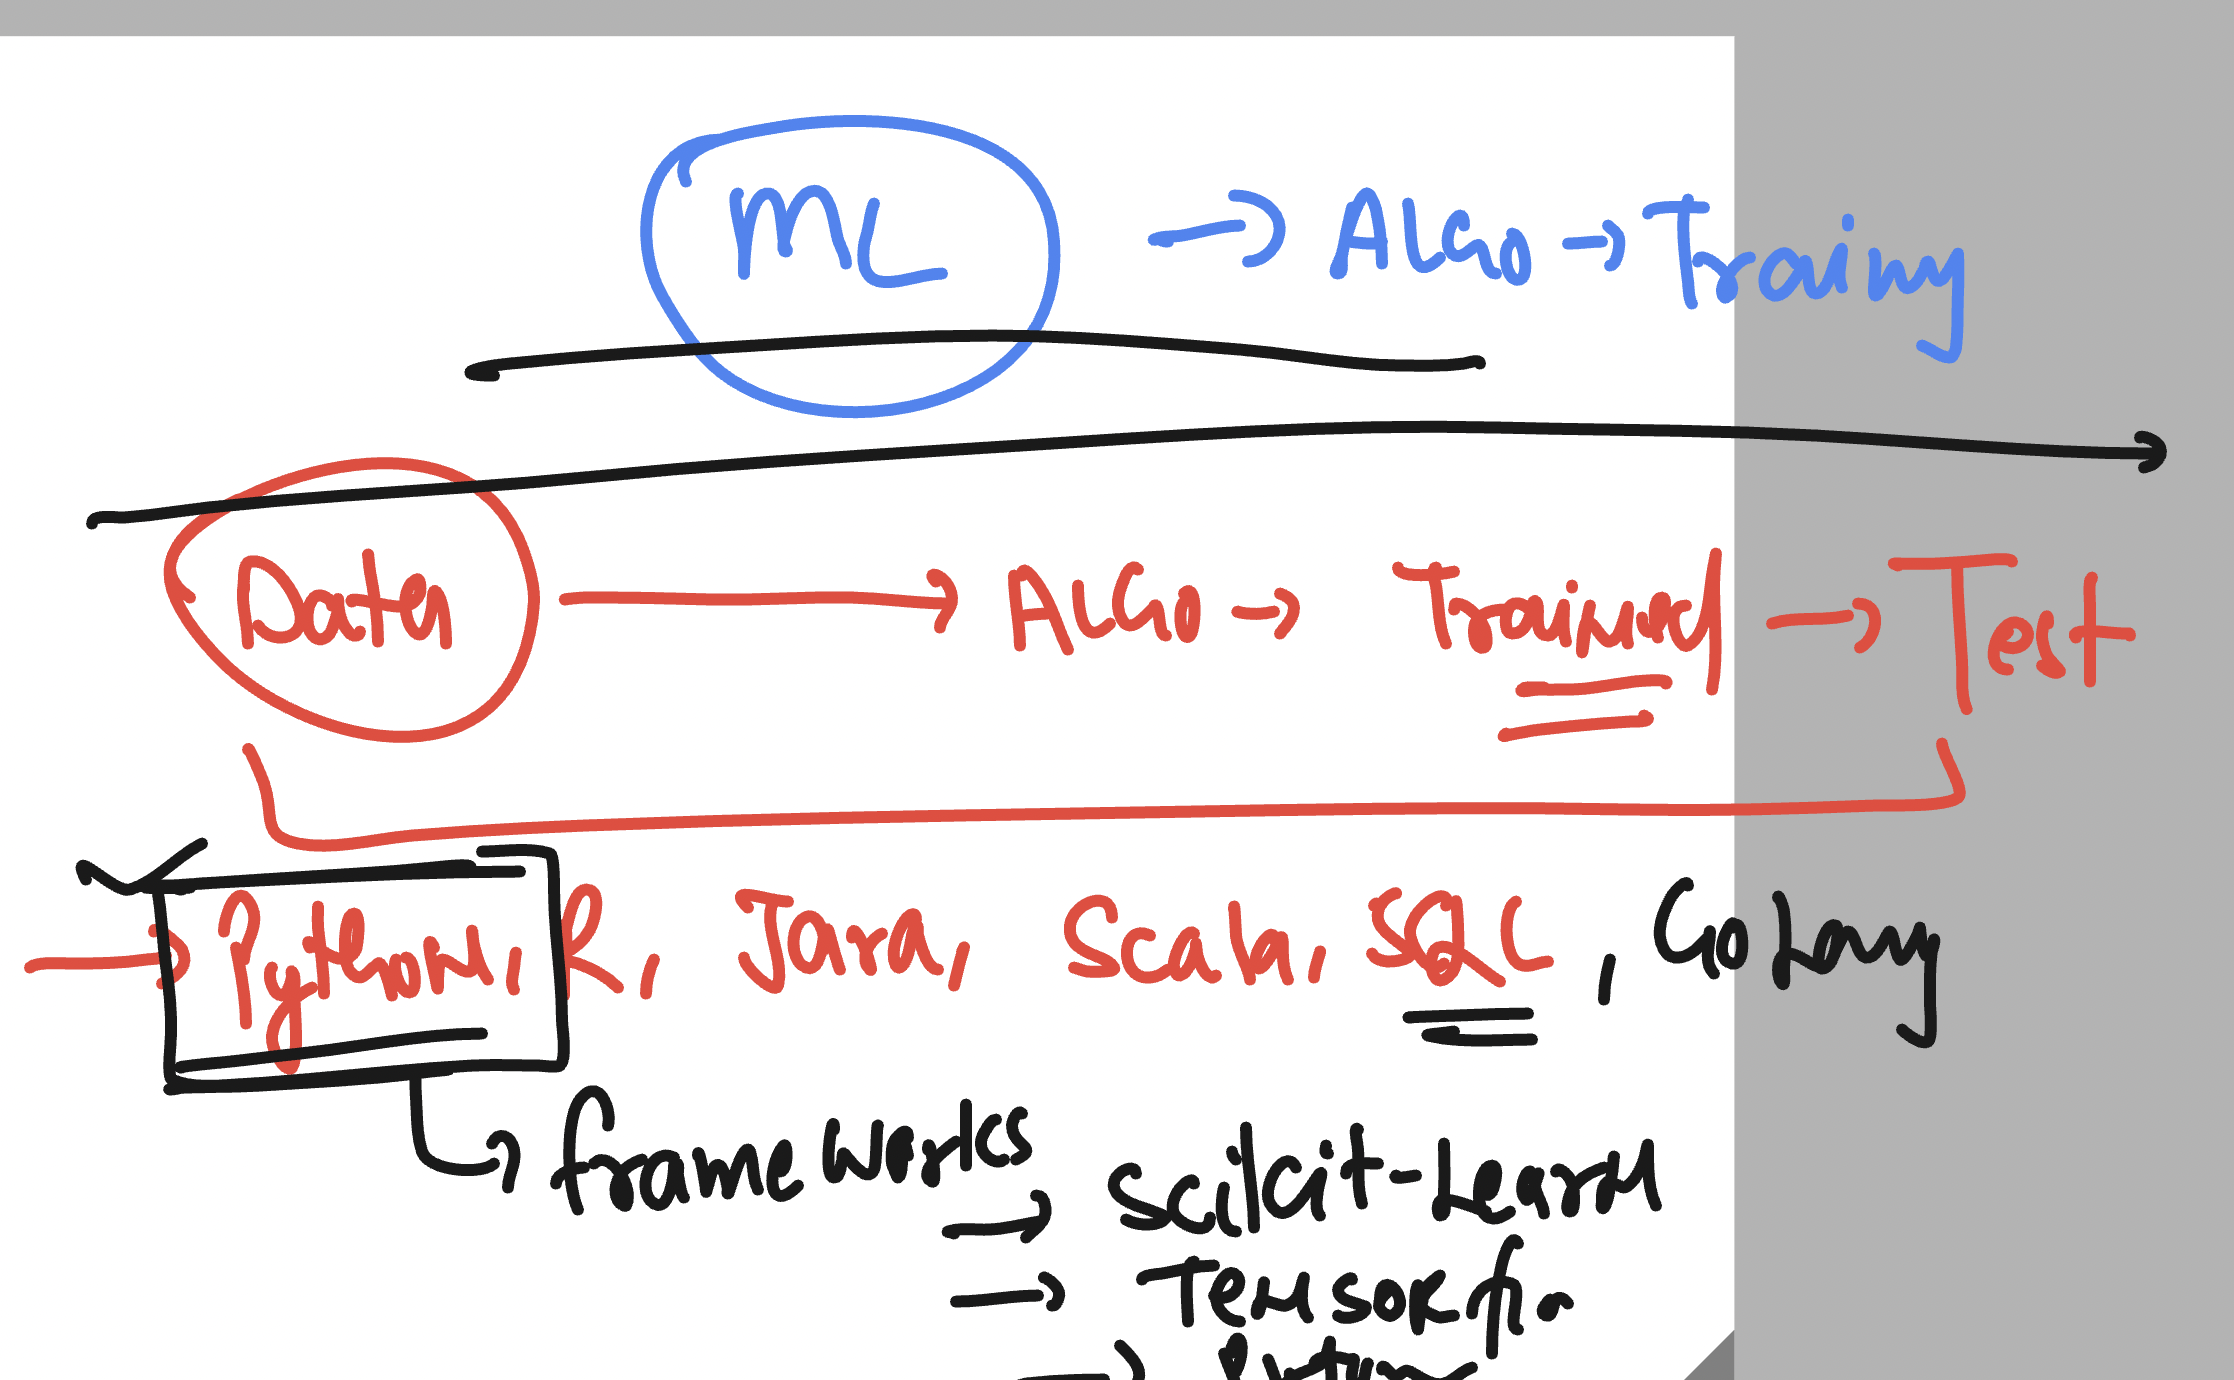 ML → ALGO → Training
Data → ALGO → Training → Test
→ Python, R, Java, Scala, SQL, GoLang
frameworks
→ Scikit-Learn
→ Tensorflo
→